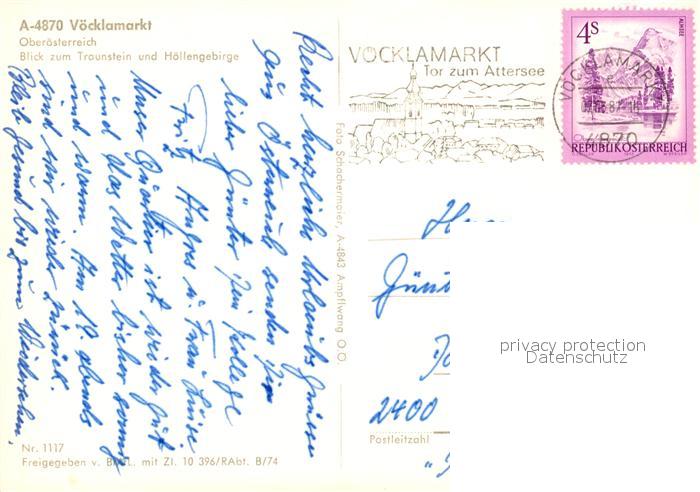 A-4870 Vöcklamarkt
Oberösterreich
Blick zum Traunstein und Höllengebirge
Recht herzliche Urlaubs Grüsse
aus Österreich senden Dir
lieber Günter Dein Kollege
Fritz u. Frau Luise
Unser Quartier ist wieder gut
und das Wetter bisher sonnig
und warm. Am 19. abends
sind wir wieder zurück.
Bleibe gesund bis zum Wiedersehen.
Nr. 1117
Freigegeben v. BMfL. mit Zl. 10 396/RAbt. B/74
Foto Schachermaier, A-4843 Ampflwang O.Ö.
VÖCKLAMARKT
Tor zum Attersee
VÖCKLAMARKT
4870
4S
ALMSEE
REPUBLIK ÖSTERREICH
2400
Postleitzahl
privacy protection
Datenschutz